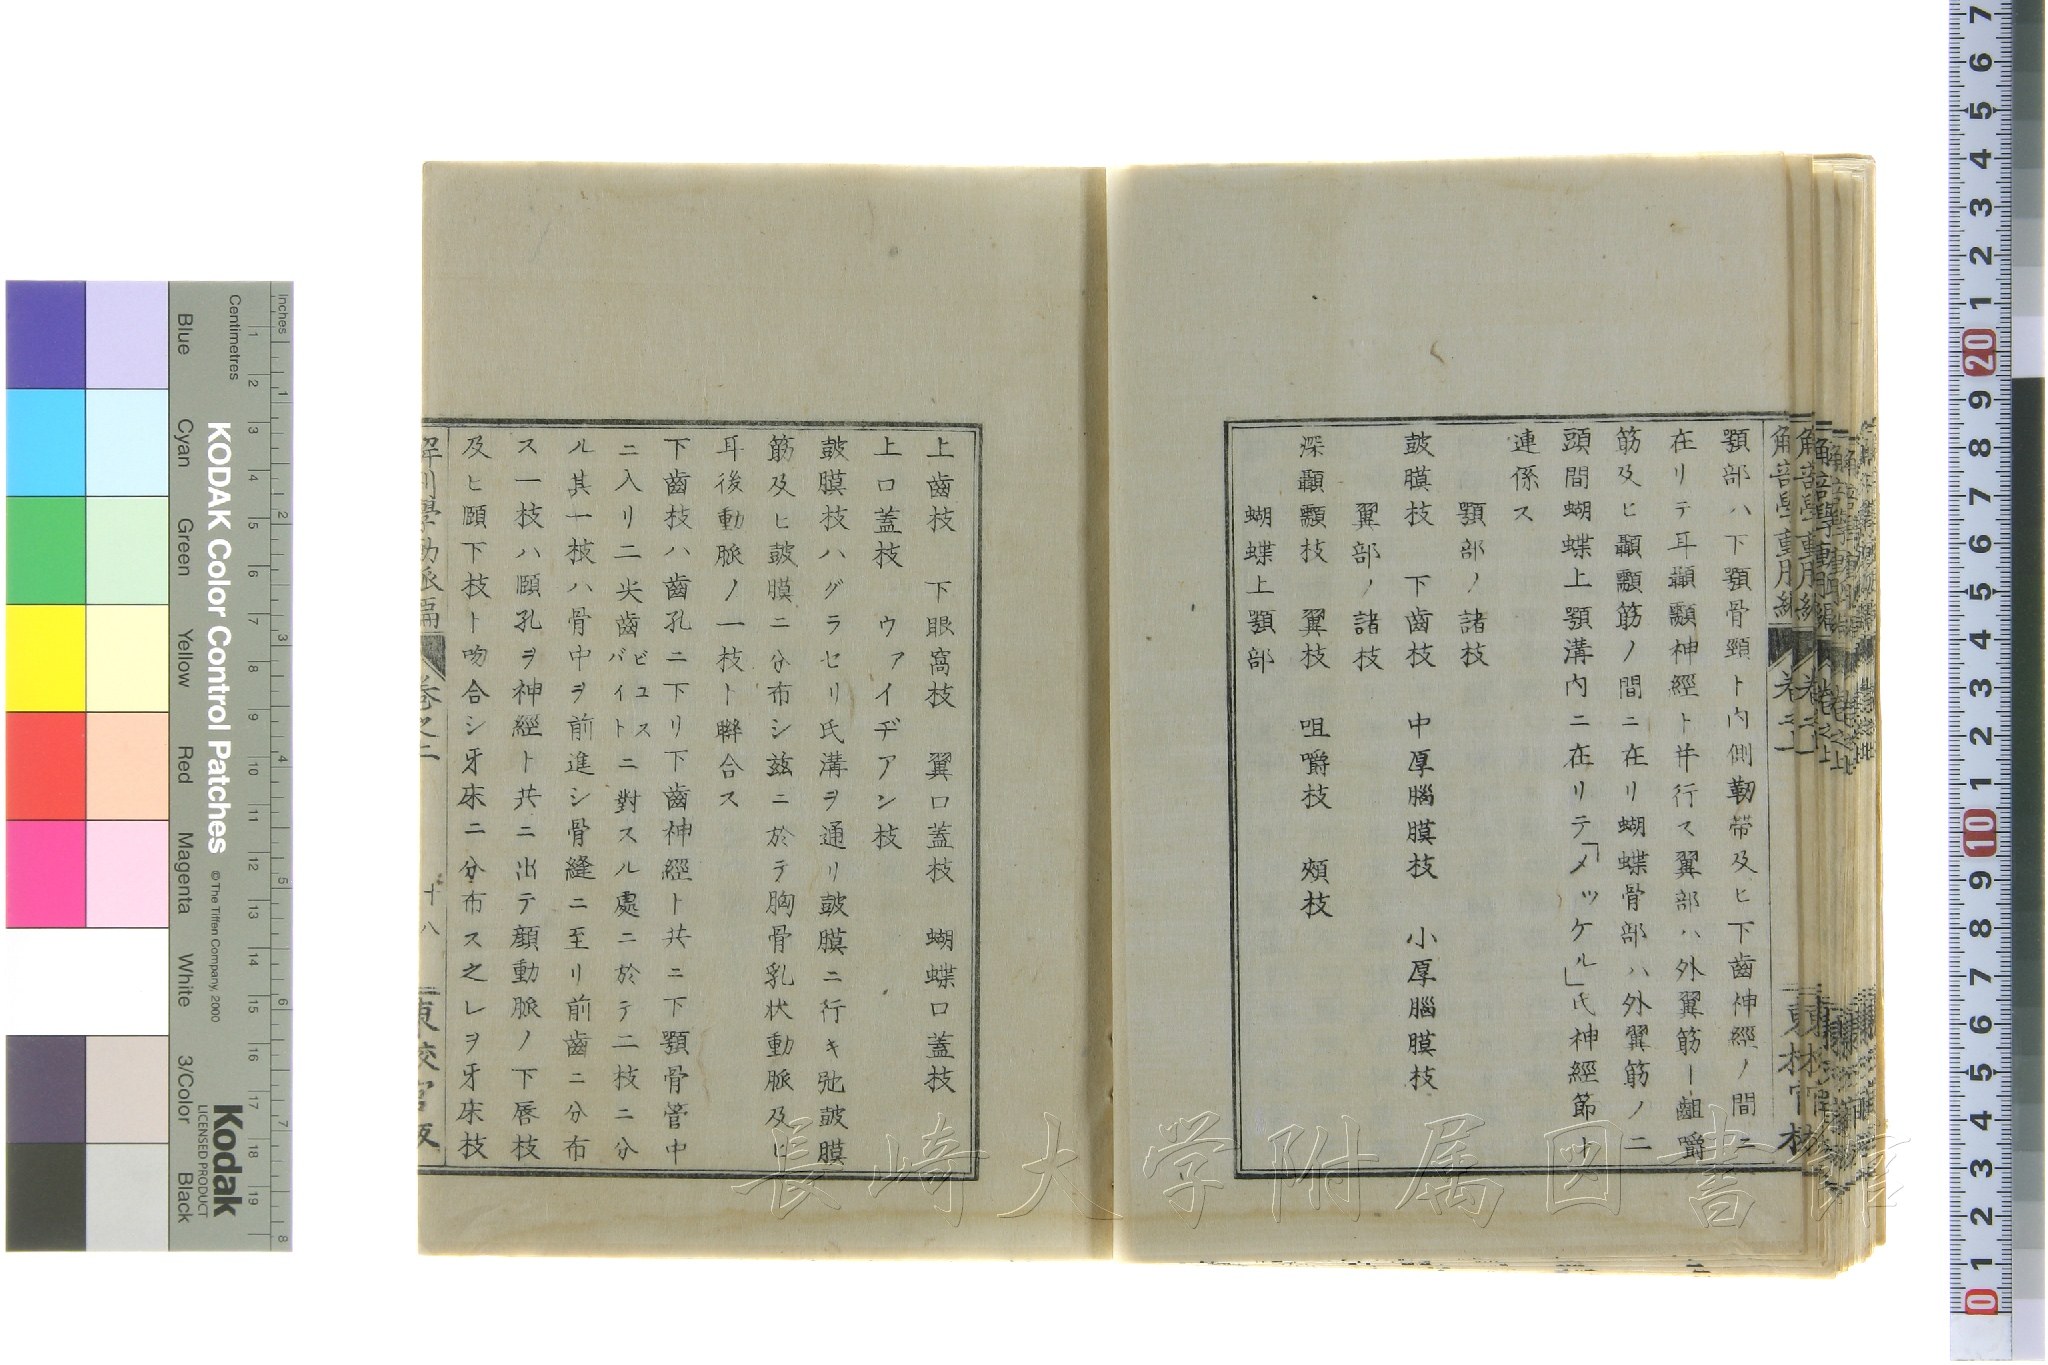 顎部ハ下顎骨頸ト内側靭帶及ヒ下齒神經ノ間ニ
在リテ耳顳顬神經ト幷行ス翼部ハ外翼筋ー齟嚼
筋及ヒ顳顬筋ノ間ニ在リ蝴蝶骨部ハ外翼筋ノ二
頭間蝴蝶上顎溝内ニ在リテ「メッケル」氏神經節ト
連係ス
顎部ノ諸枝
鼓膜枝 下齒枝 中厚腦膜枝 小厚腦膜枝
翼部ノ諸枝
深顳顬枝 翼枝 咀嚼枝 頰枝
蝴蝶上顎部
上齒枝 下眼窩枝 翼口蓋枝 蝴蝶口蓋枝
上口蓋枝 ウァイヂアン枝
鼓膜枝ハグラセリ氏溝ヲ通リ鼓膜ニ行キ弛鼓膜
筋及ヒ鼓膜ニ分布シ茲ニ於テ胸骨乳状動脈及ヒ
耳後動脈ノ一枝ト聯合ス
下齒枝ハ齒孔ニ下リ下齒神經ト共ニ下顎骨管中
ニ入リ二尖齒ビユスバイトニ對スル處ニ於テ二枝ニ分
ル其一枝ハ骨中ヲ前進シ骨縫ニ至リ前齒ニ分布
ス一枝ハ頤孔ヲ神經ト共ニ出テ顔動脈ノ下唇枝
及ヒ頤下枝ト吻合シ牙床ニ分布ス之レヲ牙床枝
解剖學動脈篇 卷之二 十八 東校官版
長崎大学附属図書館
KODAK Color Control Patches
© The Tiffen Company, 2000
Kodak
LICENSED PRODUCT
Inches
Centimetres
Blue
Cyan
Green
Yellow
Red
Magenta
White
3/Color
Black